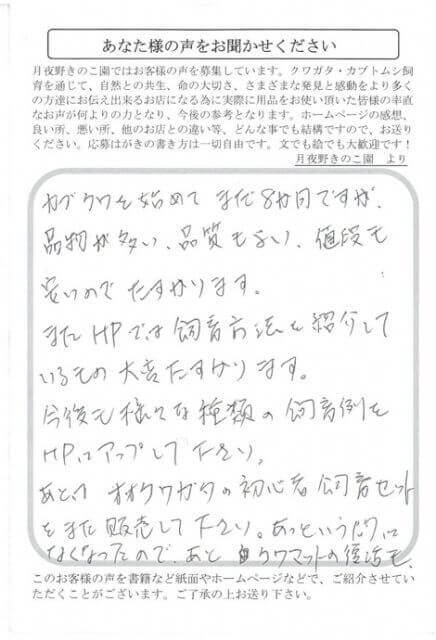 あなた様の声をお聞かせください
月夜野きのこ園ではお客様の声を募集しています。クワガタ・カブトムシ飼
育を通じて、自然との共生、命の大切さ、さまざまな発見と感動をより多く
の方達にお伝え出来るお店になる為に実際に用品をお使い頂いた皆様の率直
なお声が何よりの力となり、今後の参考となります。ホームページの感想、
良い所、悪い所、他のお店との違い等、どんな事でも結構ですので、お送り
ください。応募はがきの書き方は一切自由です。文でも絵でも大歓迎です!
月夜野きのこ園 より
カブクワを始めて まだ8か月ですが、
品物が多い、品質も良い、値段も
安いので たすかります。
また HPでは 飼育方法も 紹介して
いるもの 大変たすかります。
今後も 様々な 種類の 飼育例を
HPにアップして下さい。
あと オオクワガタの初心者 飼育セット
をまた 販売して下さい。あっという間に
なくなったので、あと クワマットの復活も、
このお客様の声を書籍など紙面やホームページなどで、ご紹介させてい
ただくことがございます。ご了承の上お送り下さい。